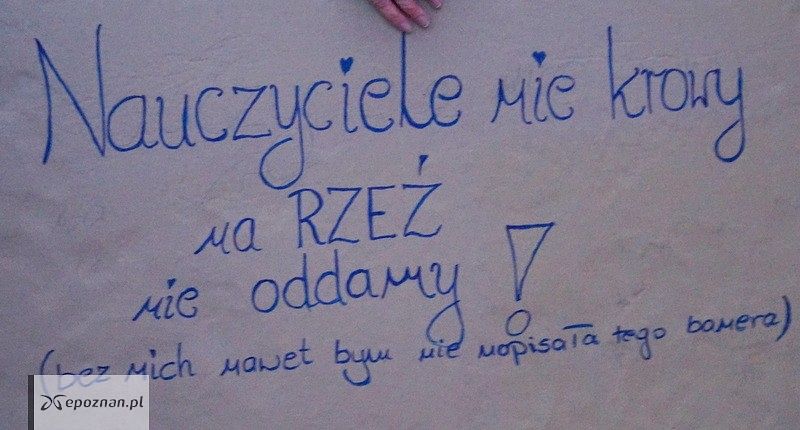 Nauczyciele nie krowy
na RZEŹ
nie oddamy!
(bez nich nawet bym nie napisała tego banera)
epoznan.pl